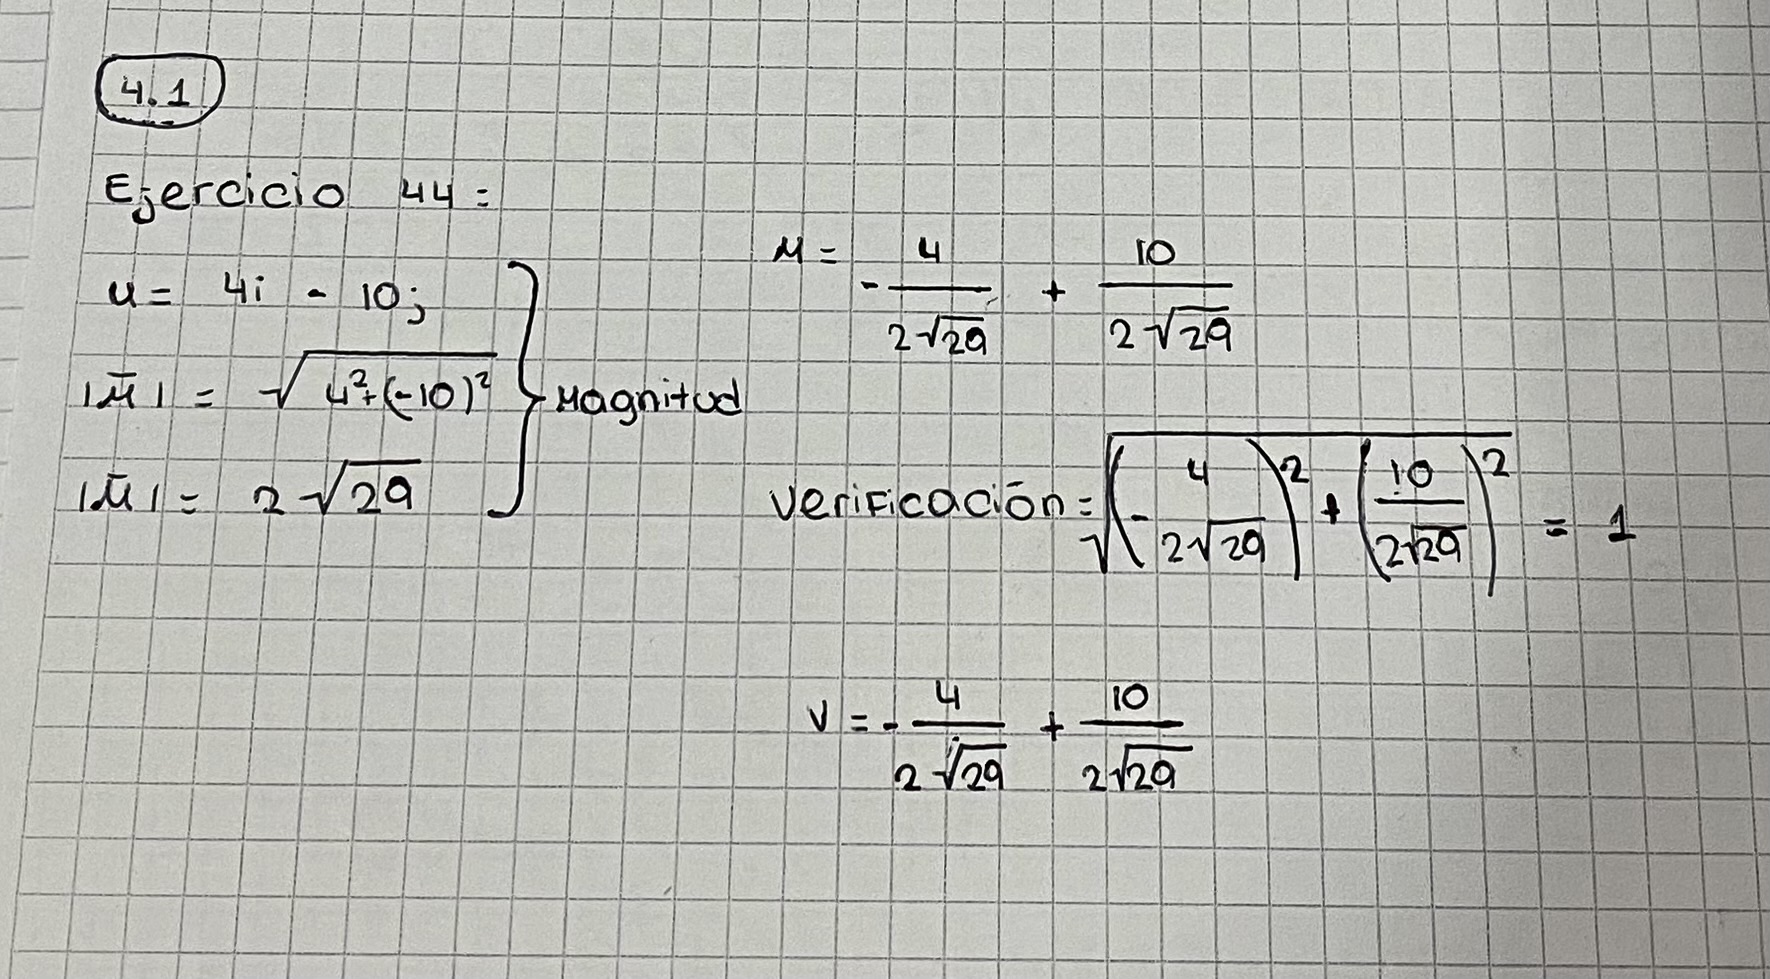 4.1
Ejercicio 44:
u = 4i - 10j
|ū| = √(4² + (-10)²)
|ū| = 2√29
Magnitud
u = - 4/(2√29) + 10/(2√29)
Verificación = √((- 4/(2√29))² + (10/(2√29))²) = 1
v = - 4/(2√29) + 10/(2√29)